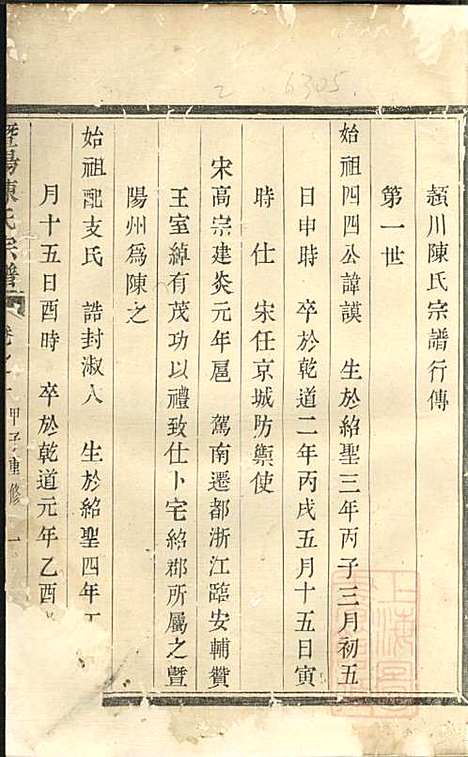 2 6305
潁川陳氏宗譜行傳
第一世
始祖四四公諱謨 生於紹聖三年丙子三月初五
日申時 卒於乾道二年丙戌五月十五日寅
時 仕 宋任京城防禦使
宋高宗建炎元年扈 駕南遷都浙江臨安輔贊
王室綽有茂功以禮致仕卜宅紹郡所屬之暨
陽州爲陳之
始祖配支氏 誥封淑人 生於紹聖四年丁
月十五日酉時 卒於乾道元年乙酉
暨陽陳氏宗譜 卷之一 甲子重修 一